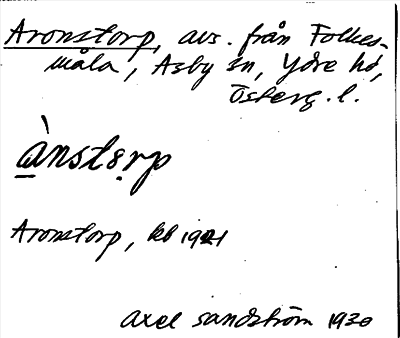 Aronstorp, avs. från Folkes-
måla, Asby sn, Ydre hd,
Österg. l.
ànstørp
Aronstorp, kb 1921
Axel Sandström 1930